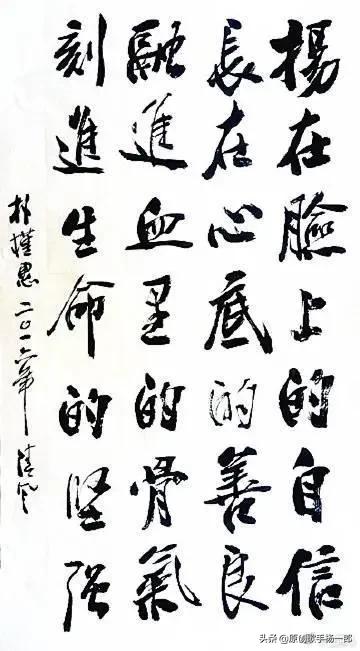 揚在臉上的自信
長在心底的善良
融進血里的骨氣
刻進生命的坚强
朴槿惠 二〇一六年 清风
头条 @原创歌手杨一郎